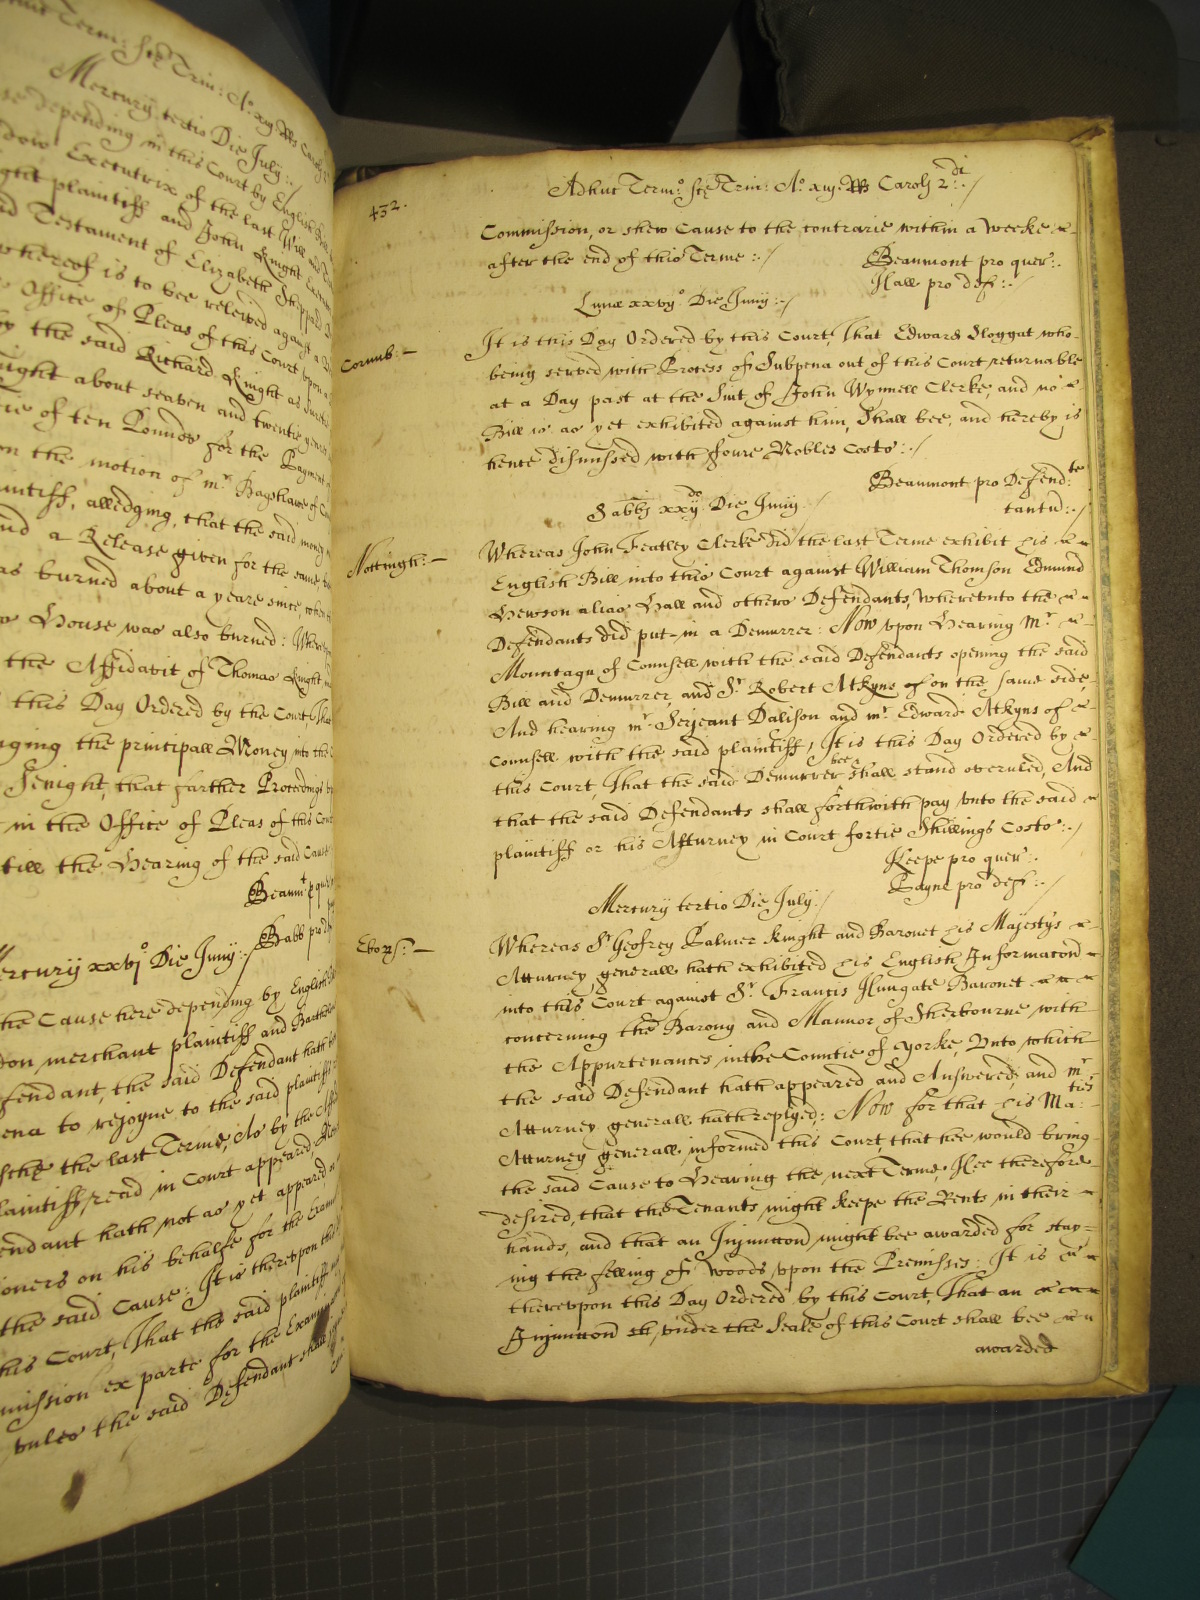 Term: Scē Trin: Ao xiij Rs Caroli 2
Mercurij tertio Die July :./
depending in this Court by English
Executrix of the last Will and
plaintiff and John Knight
Testament of Elizabeth Sheppard
whereof is to bee releived against a
Office of Pleas of this Court upon a
by the said Richard Knight as
about seaven and twentie yeares
of ten Pounds for the Payment
on the motion of mr. Bagshawe of
alledging, that the said money
and a Release given for the same,
as burned about a yeare since, when
House was also burned: Where
the Affidavit of Thomas Knight
this Day Ordered by the Court That
the principall Money into the
Senight, that farther Proceedings
in the Office of Pleas of this Court
till the Hearing of the said Cause
Beamt p quer
Babb pro
Mercurij xxvjo Die Junij :./
the Cause here depending by English
merchant plaintiff and
the said Defendant hath
to rejoyne to the said plaintiffs
the last Terme, As by the
read in Court appeared,
hath not as yet appeared
on his behalfe for the
the said Cause: It is thereupon
this Court, That the said plaintiff
ex parte for the
unles the said Defendant
432.
Adhuc Termo: Scē Trin: Ao xiij Rs Caroli 2di:./
Commission, or shew Cause to the contrarie within a Weeke
after the end of this Terme :./
Beaumont pro quer:.
Hall pro def:./
Lunæ xxvijo Die Junij :./
Cornub:—
It is this Day Ordered by this Court, That Edward Hoggat who
being served with Process of Subpena out of this Court returnable
at a Day past at the Suit of John Wynnell Clerke, and no
Bill is as yet exhibited against him, Shall bee, and hereby is
hence dismissed with foure Nobles Costs :./
Beaumont pro Defendte
tantū:./
Sabbi xxijdo Die Junij
Nottingh:—
Whereas John Featley Clerke did the last Terme exhibit his
English Bill into this Court against William Thomson Edmund
Hewson alias Hall and others Defendants, Whereunto the
Defendants did put in a Demurrer: Now upon Hearing Mr.
Mountagu of Counsell with the said Defendants opening the said
Bill and Demurrer, and Sr. Robert Atkyns of on the same side,
And hearing mr. Serjeant Dalison and mr. Edward Atkyns of
Counsell with the said plaintiff, It is this Day Ordered by
this Court, That the said Demurrer shall bee stand overuled, And
that the said Defendants shall forthwith pay unto the said
plaintiff or his Atturney in Court fortie Shillings Costs :./
Keepe pro quer:.
Payne pro def:./
Mercurij tertio Die July :/
Ebor:—
Whereas Sr. Geofrey Palmer Knight and Baronet his Majestys
Atturney generall hath exhibited his English Informacon
into this Court against Sr. Francis Hungate Baronet
concerning the Barony and Mannor of Sherbourne with
the Appurtenances in the Countie of Yorke, Unto which
the said Defendant hath appeared and Answered; and mr.
Atturney generall hath replyed: Now for that his Maties:
Atturney generall informed this Court, that hee would bring
the said Cause to Hearing the next Terme, Hee therefore
desired, that the Tenants might keepe the Rents in their
hands, and that an Injunccon might bee awarded for stay=
ing the felling of Woods, upon the Premisses: It is
thereupon this Day Ordered by this Court, That an
Injunccon sh, under the Seale of this Court shall bee
awarded